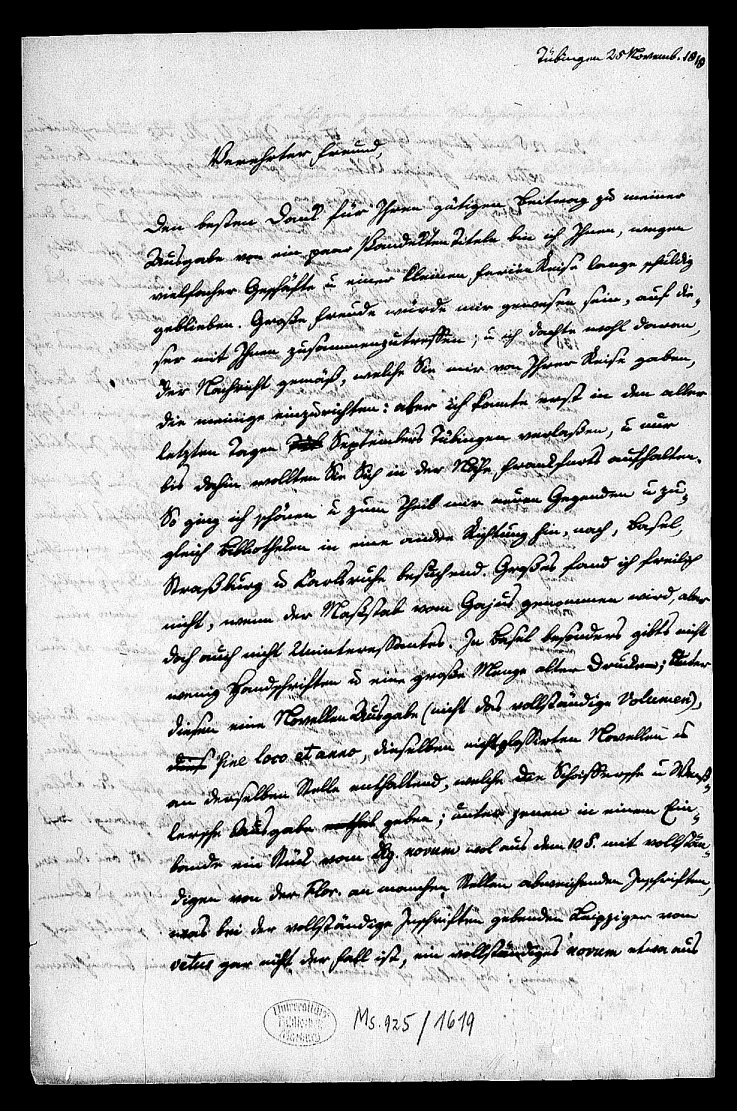 Tübingen 28 Novemb. 1818
Verehrter Freund,
Den besten Dank für Ihren gütigen Beitrag zu meiner
Ausgabe von ein paar Pandekten Titeln bin ich Ihnen, wegen
vielfacher Geschäfte u einer kleinen Ferien Reise lange schuldig
geblieben. Große Freude würde mir gewesen sein, auf die-
ser mit Ihnen zusammenzutreffen, u ich dachte wohl daran,
der Nachricht gemäß, welche Sie mir von Ihrer Reise gaben,
die meinige einzurichten: aber ich konnte erst in den aller
letzten Tagen Septembers Tübingen verlaßen, u nur
bis dahin wollten Sie Sich in der Nähe Frankfurts aufhalten.
So ging ich schönen u zum Theil mir neuen Gegenden u zu-
gleich Bibliotheken in eine andre Richtung hin, nach, Basel,
Straßburg u Karlsruhe besuchend. Großes fand ich freilich
nicht, wenn der Maßstab vom Gajus genommen wird, aber
doch auch nicht Uninteressantes. In Basel besonders gibts nicht
wenig Handschriften u eine große Menge alter Drucke; unter
diesen eine Novellen Ausgabe (nicht das vollständige Volumen),
sine loco et anno, dieselben nichtglossirten Novellen
an derselben Stelle enthaltend, welche die Schöffersche u
lersche Ausgabe geben; unter jenen in einem Ein-
bande ein Stück vom Dig. novum wol aus dem 10 S. mit vollstän-
digen von der Flor. an manchen Stellen abweichenden Inschriften,
was bei der vollständige Inschriften gebenden Leipziger vom
vetus gar nicht der Fall ist, ein vollständiges novum etwa aus
Universitäts
Bibliothek
Marburg
Ms. 925/1619